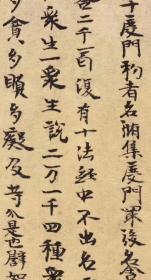 十度門初者名瀰集度門深後名含
芭二千百復有十法於中不出名
衆生一衆生說二万一千四種衆
多貪多瞋多癡及等分是也譬如